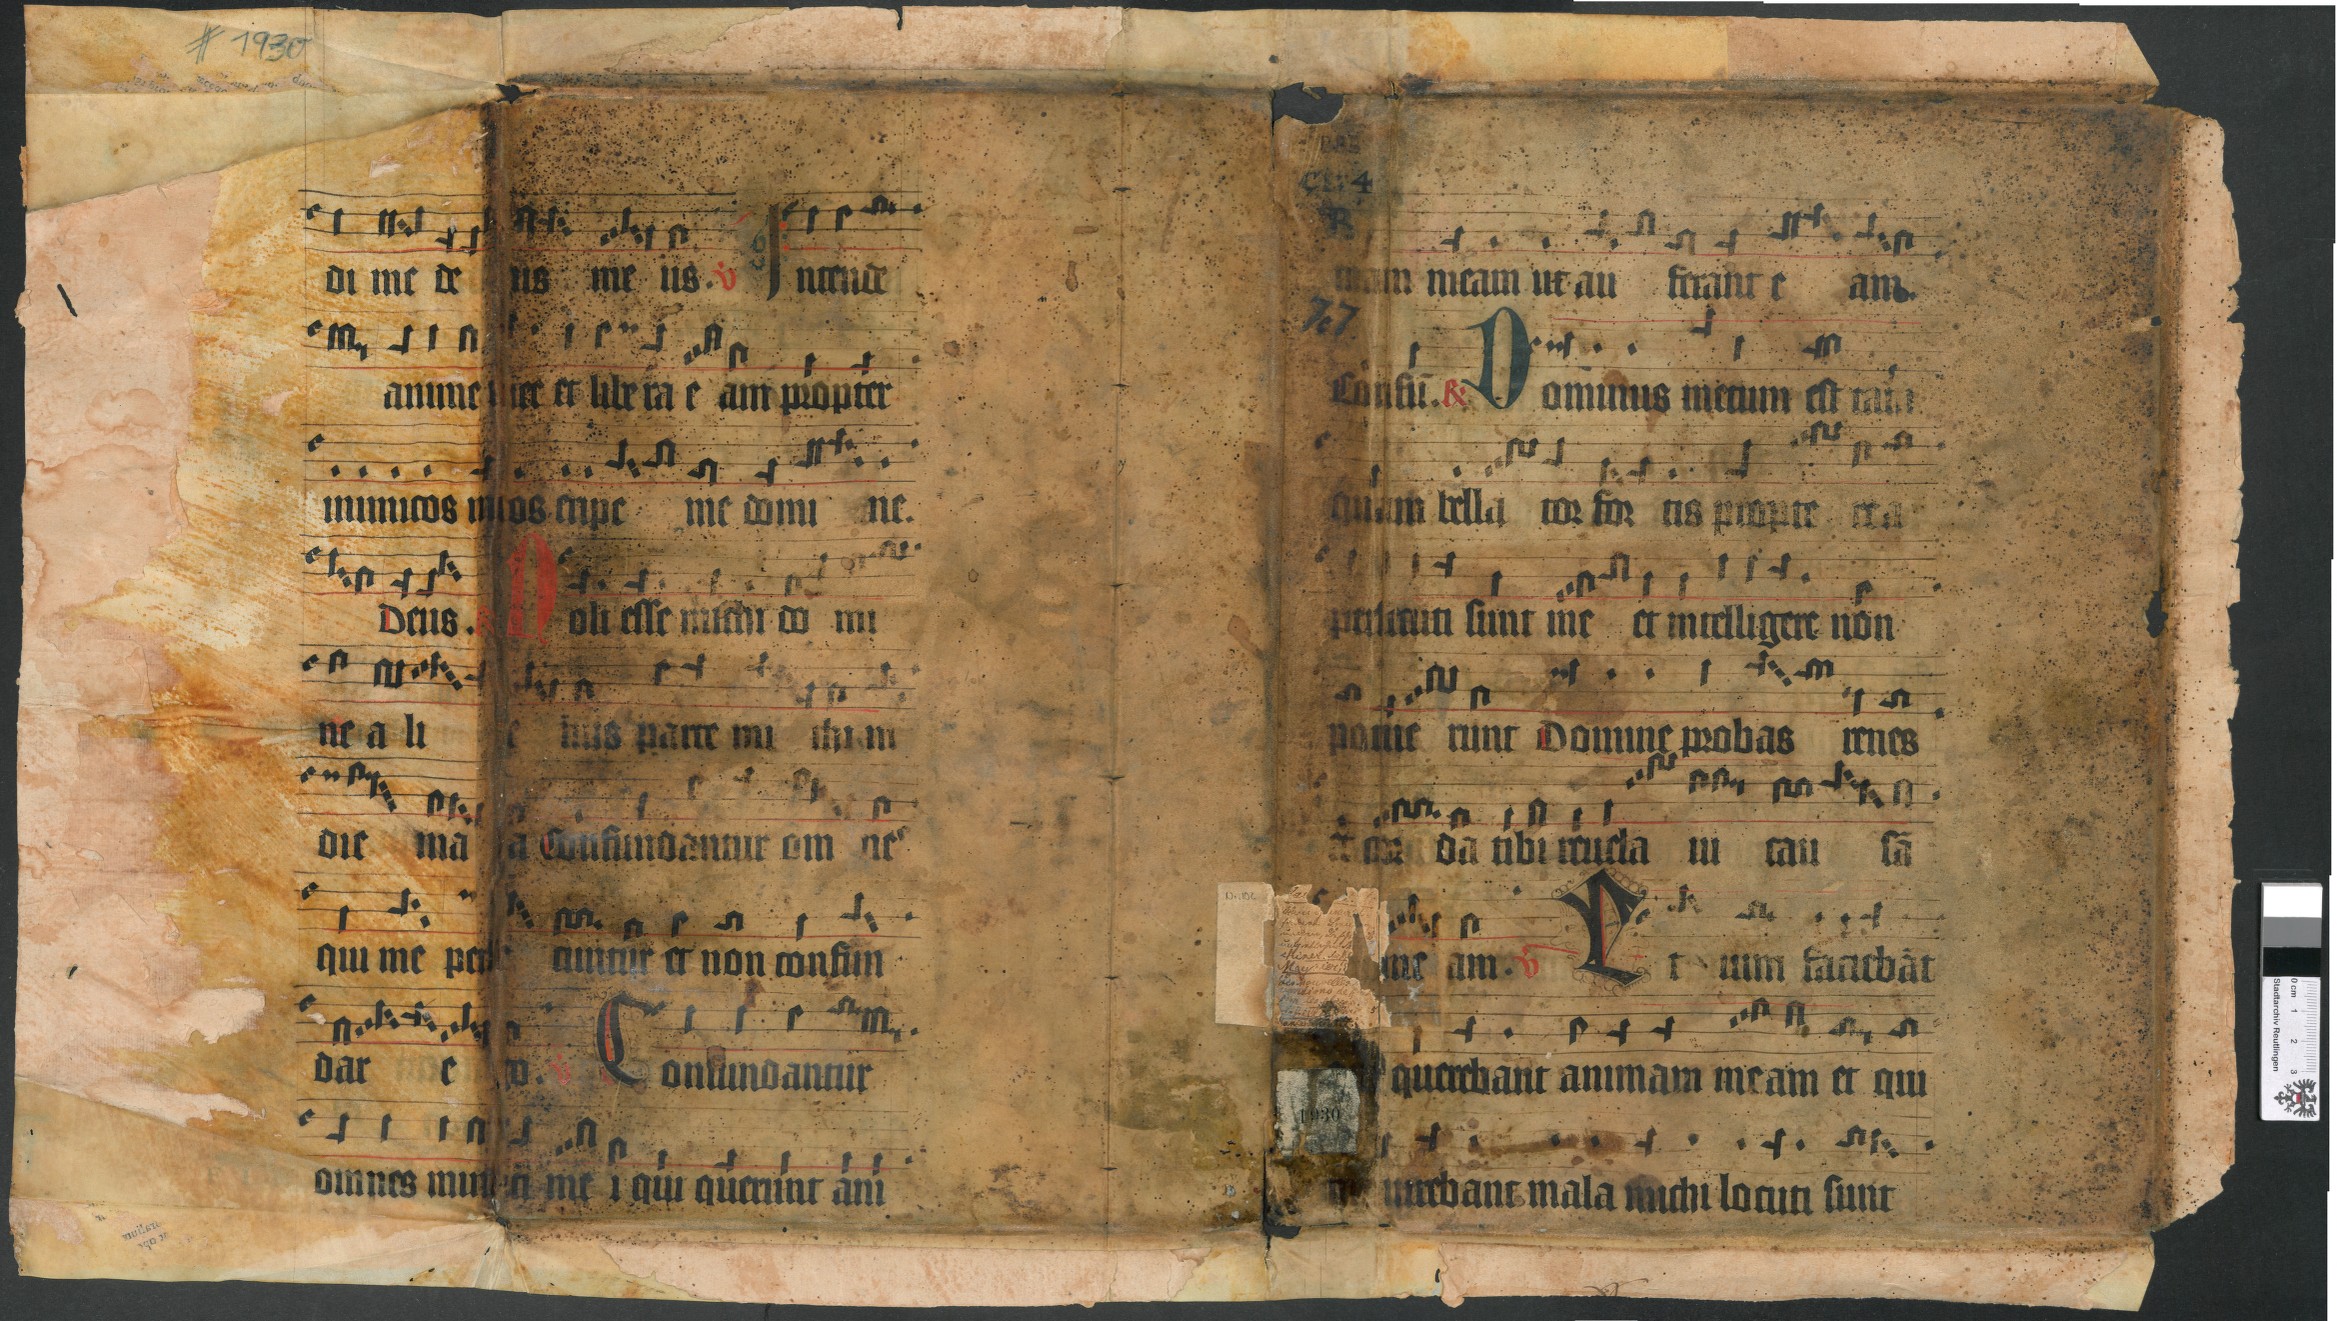 # 1930
di me de us me us. v Intende
anime mee et libera e am propter
inimicos meos eripe me domi ne.
Deus. Noli esse michi do mi
ne a li e nus parce mi chi in
die ma la Confundantur om nes
qui me per quntur et non confun
dar e o. v Confundantur
omnes inimici me i qui querunt ani
CL: 4
R
mam meam ut au ferant e am.
7.7
Confu. R Dominus mecum est tam
quam bella tor for tis propte rea
persecuti sunt me et intelligere non
potue runt Domine probas renes
et cor da tibi reuela ui cau sam
me am. v Et uim faciebant
querebant animam meam et qui
inquirebant mala michi locuti sunt
1930
0 cm 1 2 3
Stadtarchiv Reutlingen